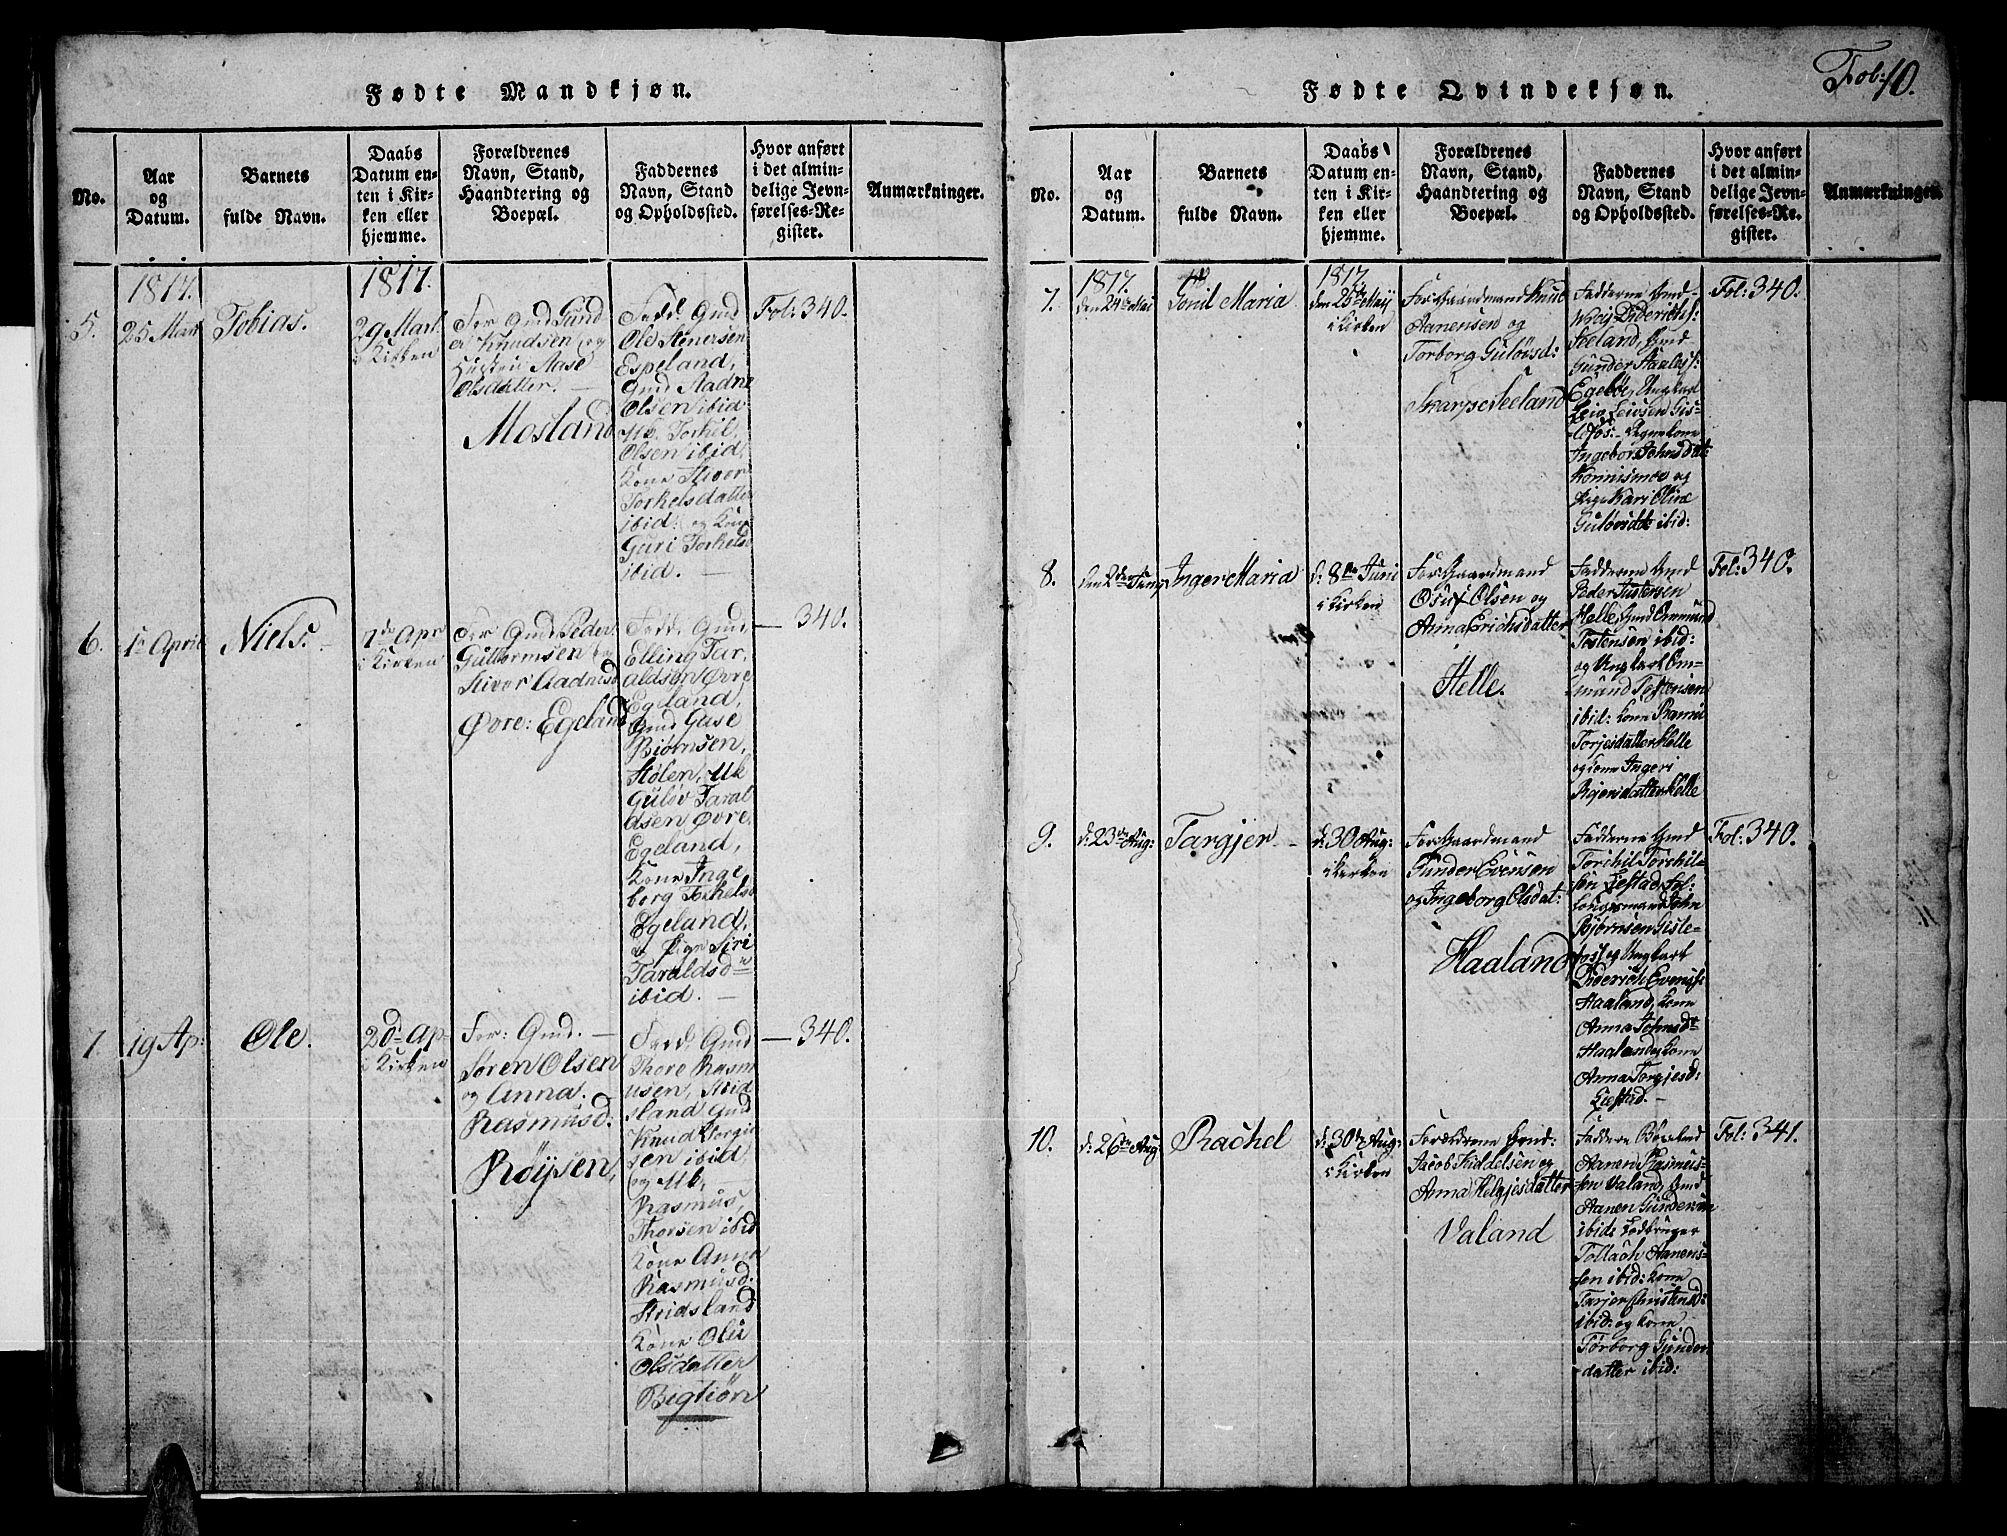 Fødte Mandkjøn.
No.
Aar
og
Datum.
Barnets
fulde Navn.
Daabs
Datum en-
ten i Kir-
ken eller
hjemme.
Forældrenes
Navn, Stand,
Haandtering og
Boepæl.
Faddernes
Navn, Stand
og Opholdssted.
Hvor anført
i det almin-
delige Jevn-
førelses-Re-
gister.
Anmærkninger.
1817.
5.
25 Mart
Tobias.
1817.
29 Mart
i Kirken
For Gmd Gund
er Knudsen og
Aase
Olsdatter.
Mosland
Fadd. Gmd
Ole Stenersen
Espeland,
Gmd Aadne
Olsen ibid
Mk. Torkil
Olsen ibid,
Kone Sivor
Torkelsdatter
ibid: og Kone
Guri Torkelsd
ibid.
Fol: 340.
6.
1 April
Niels.
7de Apr
i Kirken
For Gmd Peder
Guttormsen og
Sivor Aadnesd
Øvre: Egeland
Fadd. Gmd
Elling Tar,
aldsen Øvre
Egeland,
Gmd Gase
Biørnsen,
Stølen, Mk
Guløv Taral
dsen Øvre
Egeland,
Kone Inge
borg Torkelsd
Egeland,
Pige Siri
Taraldsd
ibid.
340.
7.
19 Ap:
Ole.
20 Ap
i Kirken
For: Gmd.
Søren Olsen
og Anna.
Rasmusd:
Røysen,
Fadd. Gmd
Thore Rasm
usen, Strid
sland Gmd
Knud Torgi
sen ibid
og Mk.
Rasmus,
Thorsen ibid
Kone Anna
Rasmusd.
Stridsland
Kone Oliv
Olsdatter
Begtiøn
340.
Fol: 10.
Fødte Qvindekjøn.
No.
Aar
og
Datum.
Barnets
fulde Navn.
Daabs
Datum en-
ten i Kir-
ken eller
hjemme.
Forældrenes
Navn, Stand,
Haandtering og
Boepæl.
Faddernes
Navn, Stand
og Opholdssted.
Hvor anført
i det almin-
delige Jevn-
førelses-Re-
gister.
Anmærkninger.
7.
1817.
den 24de Mai
Gonil Maria
1817.
den 25de Maij
i Kirken
For: Gaardmand Knud
Aanensen og
Torborg Guløvsd:
Skarpeseeland
Fadderne Gmd
Diderichs:
Seeland, Gmd
Gunder Aaless:
Egebøe, Ungkarl
Leiv Leivsen Gis-
løfos.
Ingebor Johnsdat:
og
Pige Kari Olive
Guløvsdt: ibid:
Fol: 340.
8.
den 2den Juny
Inger Maria
d: 8de Juni
i Kirken
For: Gaardmand
Osuf Olsen og
Anna Erichsdatter
Helle.
Fadderne Gmd
Peder Tostensen
Helle, Gmd Ommund
Tostensen ibid:
og Ungkarl Om-
mund Tostensen
ibid: Kone
Torjesdatter Helle
og Kone Ingeri
Helle
Fol: 340.
9.
d: 23de Aug:
Targjer
d: 30 Aug:
i Kirken
For: Gaardmand
Gunder Evensen
og Ingeborg Olsdat:
Haaland
Fadderne Gmd
Torchil Torchil-
sen Lefstad,
John
Bjørnsen Gisle-
fos, og Ungkarl
Diderich Evens:
Haaland, Kone
Anna Johnsdr
Haaland, Kone
Anna Torgjesd:
Lefstad.
Fol: 340.
10.
d: 26de Aug
Rachel
d: 30te Aug:
i Kirken
Forældrene Gmd:
Jacob Kiddelsen og
Anna Helgjesdatter
Valand
Faddere
Aanen Rasmus-
sen Valand, Gmd
Aanen Gundersen
ibid:
Tollach Aanens-
sen ibid: Kone
Tarjer Christensd:
ibid: og Kone
Torborg Gunder
datter ibid:
Fol: 341.